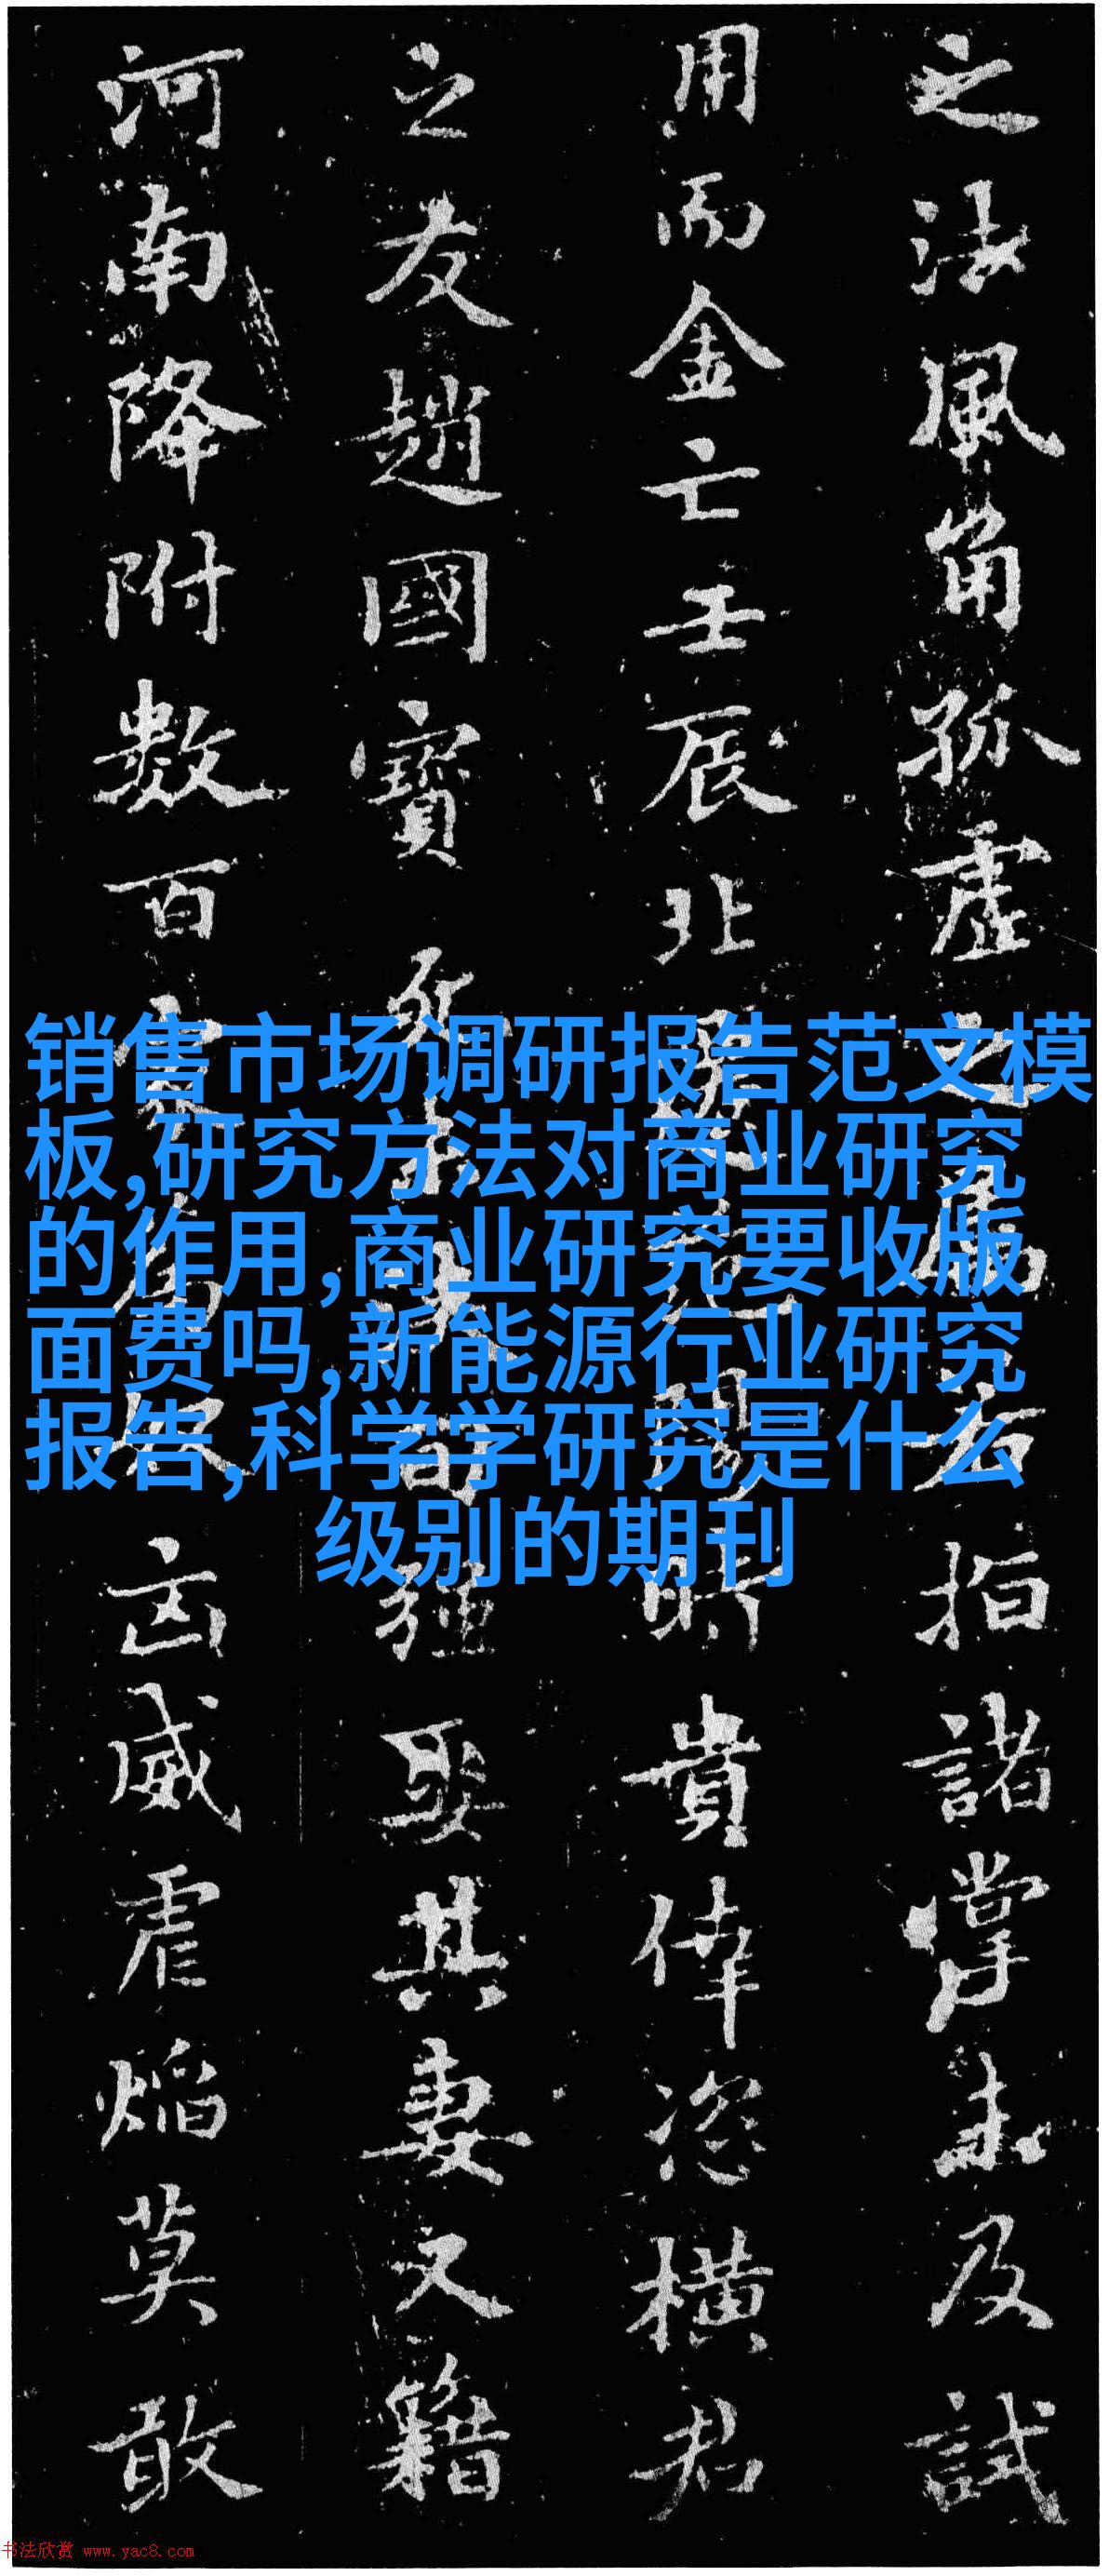 之法風角孤虛之
指諸掌未及試
用而金亡壬辰北
貴倖恣橫君
之友趙國寶
強娶其妻文籍
河南降附数百家
凶威虐焰莫敢
销售市场调研报告范文模
板,研究方法对商业研究
的作用,商业研究要收版
面费吗,新能源行业研究
报告,科学学研究是什么
级别的期刊
书法欣赏 www.yac8.com